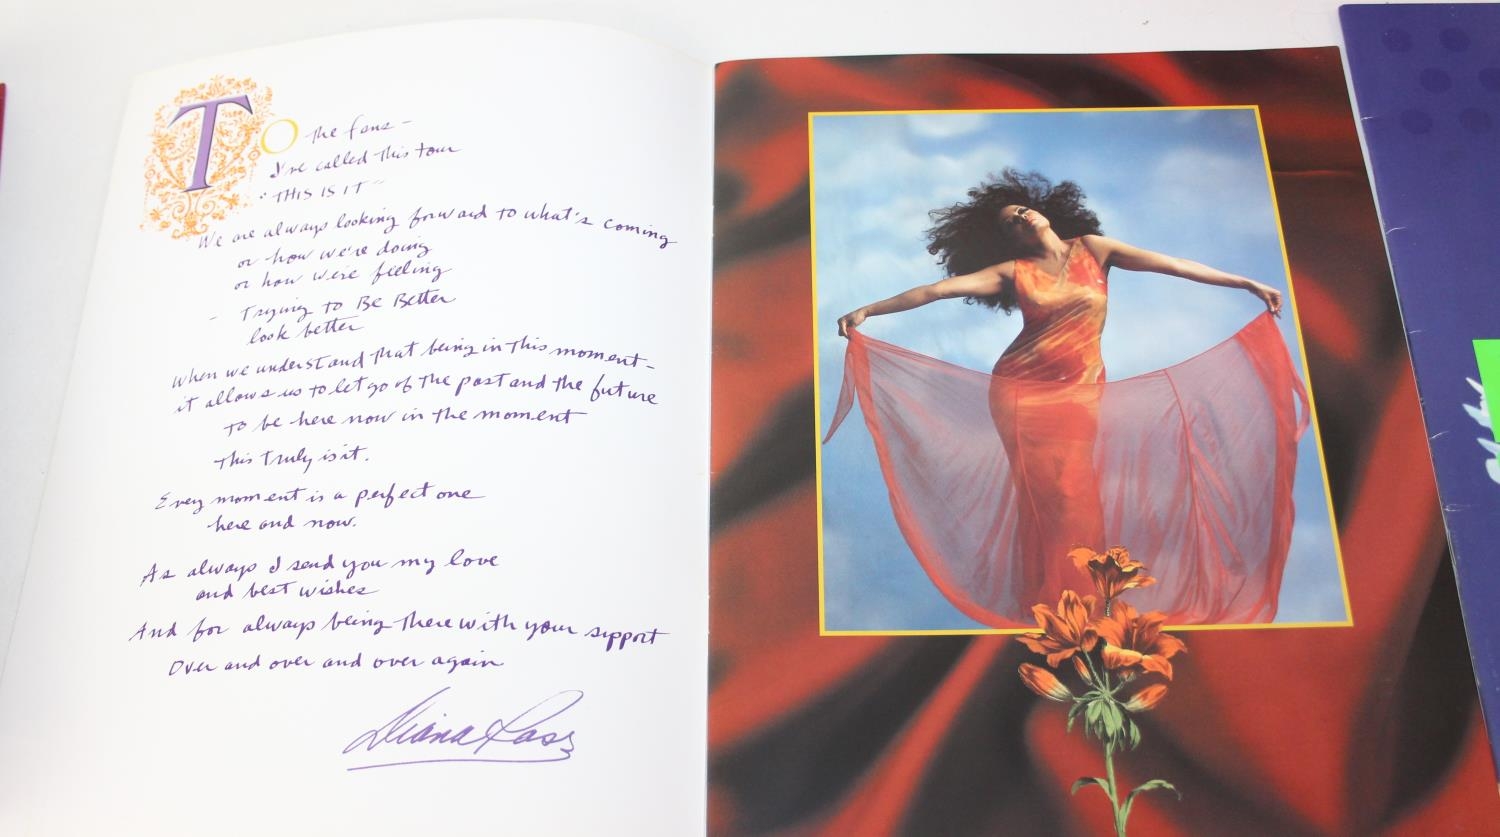 To the fans –
I've called this tour
"THIS IS IT"
We are always looking forward to what's coming
or how we're doing
or how we're feeling
– Trying to Be Better
look better
When we understand that being in this moment –
it allows us to let go of the past and the future
to be here now in the moment
This Truly is it.
Every moment is a perfect one
here and now.
As always I send you my love
and best wishes
And for always being there with your support
Over and over and over again
Diana Ross